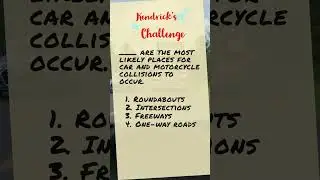 Kendrick's
Challenge
____ are the most
likely places for
car and motorcycle
collisions to
occur.
1. Roundabouts
2. Intersections
3. Freeways
4. One-way roads